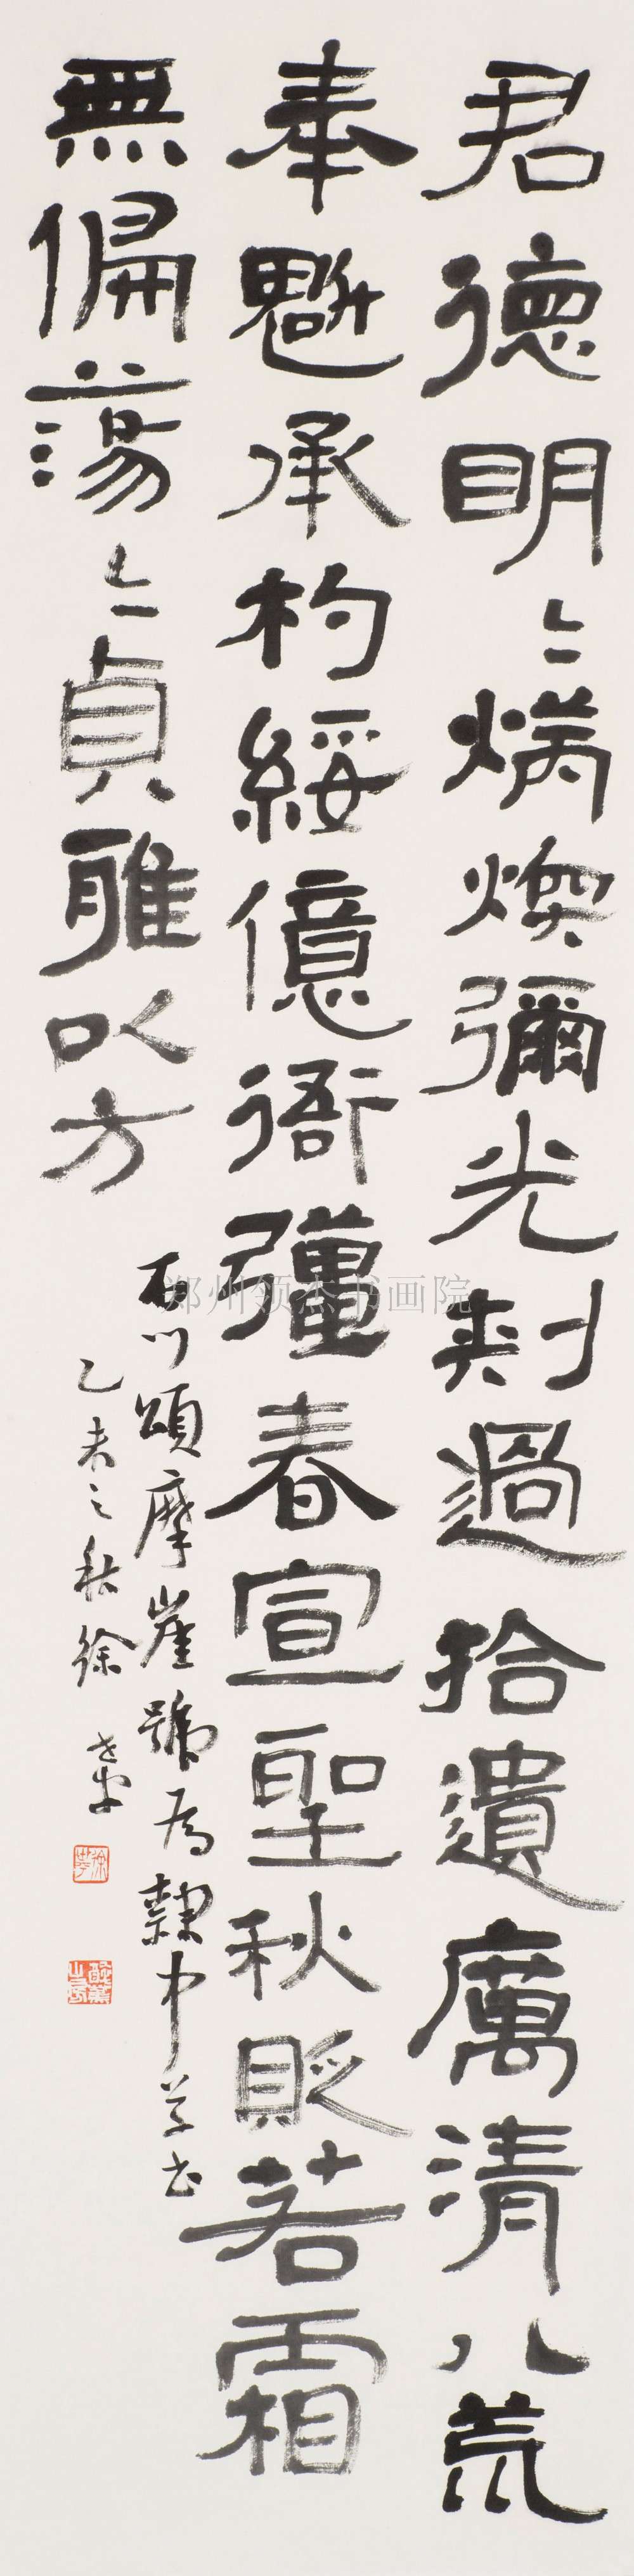 君德明〻炳煥彌光刾過拾遺厲清八荒
奉魁承杓綏億衙彊春宣聖秋貶若霜
無偏蕩〻貞雅以方
石門頌摩崖號為隸中草書
乙未之秋徐
郑州领杰书画院